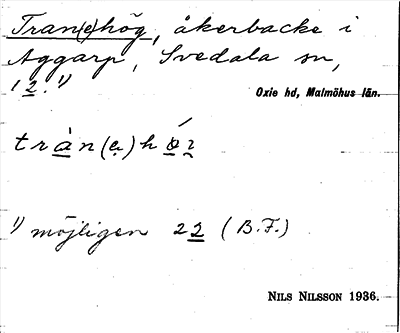 Tran(e)hög, åkerbacke i
Aggarp, Svedala sn,
12. 1)
Oxie hd, Malmöhus län.
1) möjligen 22 (B.F.)
NILS NILSSON 1936.